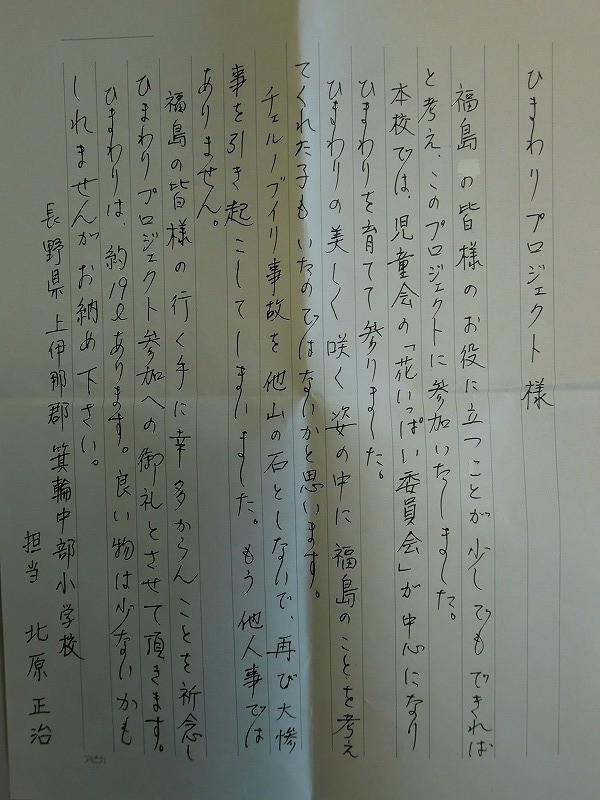 ひまわりプロジェクト様
福島の皆様のお役に立つことが少しでもできれば
と考え、このプロジェクトに参加いたしました。
本校では、児童会の「花いっぱい委員会」が中心になり
ひまわりを育てて参りました。
ひまわりの美しく咲く姿の中に福島のことを考え
てくれた子もいたのではないかと思います。
チェルノブイリ事故を他山の石としないで、再び大惨
事を引き起こしてしまいました。もう他人事では
ありません。
福島の皆様の行く手に幸多からんことを祈念し
ひまわりプロジェクト参加への御礼とさせて頂きます。
ひまわりは、約19ℓあります。良い物は少ないかも
しれませんがお納め下さい。
長野県上伊那郡箕輪中部小学校
担当 北原正治